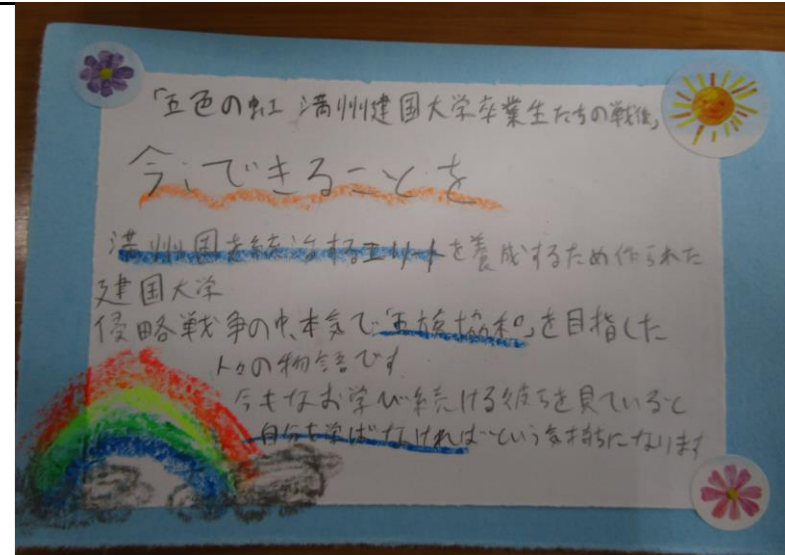 「五色の虹 満州建国大学卒業生たちの戦後」
今、できることを
満州国を統治するエリートを養成するため作られた
建国大学
侵略戦争の中、本気で「五族協和」を目指した
人々の物語です
今もなお学び続ける彼らを見ていると
自分も学ばなければという気持になります